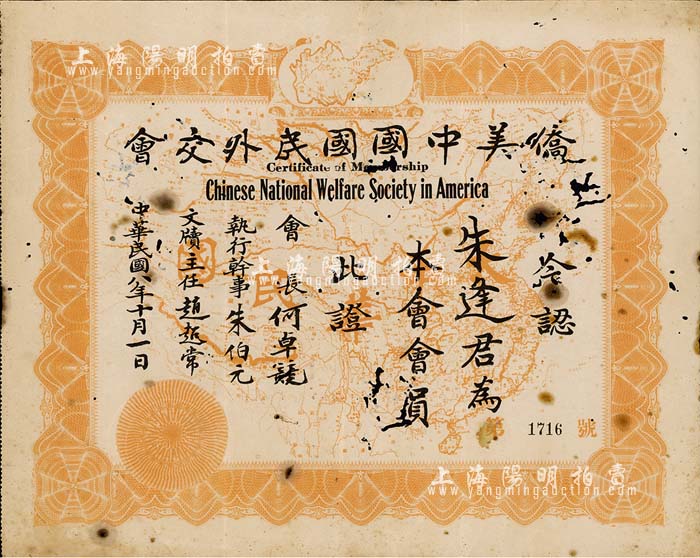 上海陽明拍賣
www.yangmingauction.com
僑美中國國民外交會
Certificate of Membership
Chinese National Welfare Society in America
茲認
朱逢君為
本會會員
此證
會長何卓競
執行幹事朱伯元
文牘主任趙超常
中華民國八年十月一日
國民
第 1716 號
上海陽明拍賣
www.yangmingauction.com